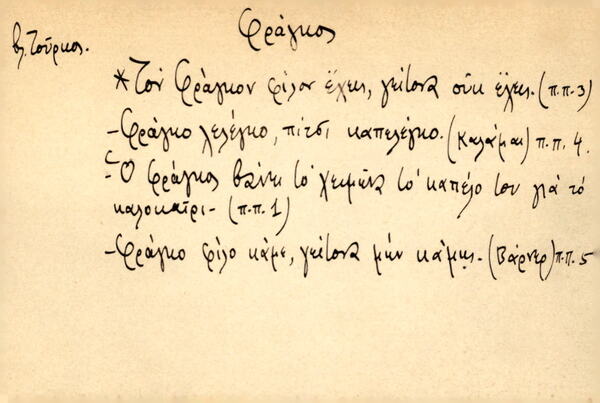 Φράγκος
βλ. Τοῦρκος.
* Τὸν Φράγκον φίλον ἔχεις, γείτονα οὐκ ἔχεις. (π.π. 3)
- Φράγκο λελέγκο, πίτσι καπελέγκο. (Καλάμαι) π.π. 4.
- Ὁ Φράγκος βάνει τὸ χειμῶνα τὸ καπέλο του γιὰ τὸ
καλοκαῖρι - (π.π. 1)
- Φράγκο φίλο κάμε, γείτονα μὴν κάμῃς. (Βάρνερ) π.π. 5